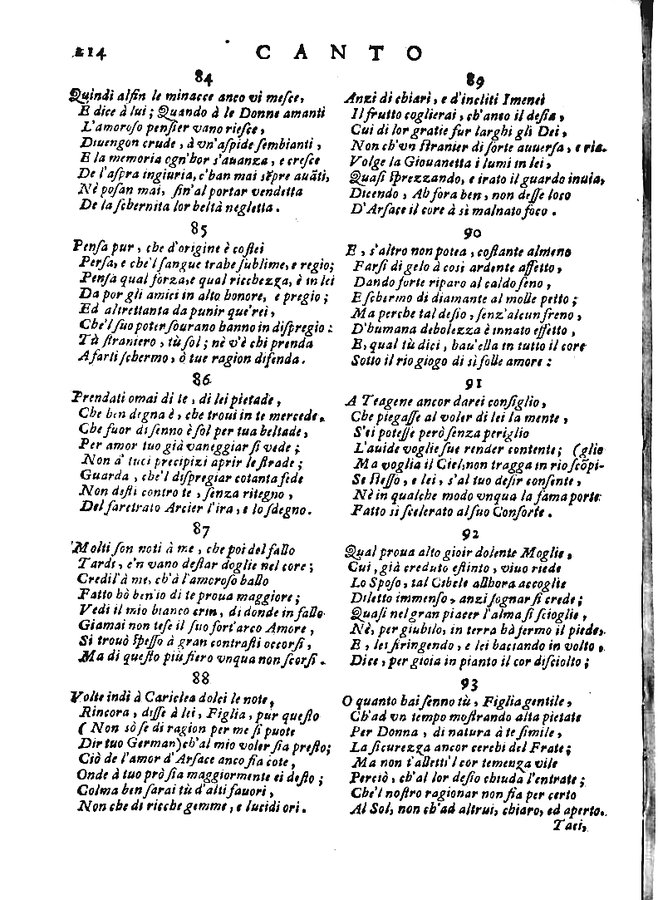 214 CANTO
84
Quindi alfin le minacce anco vi mesce,
E dice à lui; Quando à le Donne amanti
L'amoroso pensier vano riesce,
Diuengon crude, à vn'aspide sembianti,
E la memoria ogn'hor s'auanza, e cresce
De l'aspra ingiuria, c'han mai sẽpre auãti,
Nè posan mai, fin'al portar vendetta
De la schernita lor beltà negletta.
85
Pensa pur, che d'origine è costei
Persa, e che'l sangue trahe sublime, e regio;
Pensa qual forza, e qual ricchezza, è in lei
Da por gli amici in alto honore, e pregio;
Ed altrettanta da punir que'rei,
Che'l suo poter sourano hanno in dispregio:
Tù straniero, tù sol; nè v'è chi prenda
A farti schermo, ò tue ragion difenda.
86
Prendati omai di te, di lei pietade,
Che ben degna è, che troui in te mercede.
Che fuor di senno è sol per tua beltade,
Per amor tuo già vaneggiar si vede;
Non a' tuoi precipizi aprir le strade;
Guarda, che'l dispregiar cotanta fede
Non desti contro te, senza ritegno,
Del faretrato Arcier l'ira, e lo sdegno.
87
Molti son noti à me, che poi del fallo
Tardi, e'n vano destar doglie nel core;
Credil'à me, ch'à l'amoroso ballo
Fatto hò ben'io di te proua maggiore;
Vedi il mio bianco crin, di donde in fallo
Giamai non tese il suo fort'arco Amore,
Si trouò spesso à gran contrasti occorsi,
Ma di questo più fiero vnqua non scorsi.
88
Volte indi à Cariclea dolci le note,
Rincora, disse à lei, Figlia, pur questo
(Non sò se di ragion per me si puote
Dir tuo German) ch'al mio voler sia presto;
Ciò de l'amor d'Arsace anco fia cote,
Onde à tuo prò sia maggiormente ei desto;
Colma ben sarai tù d'alti fauori,
Non che di ricche gemme, e lucidi ori.
89
Anzi di chiari, e d'incliti Imenei
Il frutto coglierai, ch'anco il desia,
Cui di lor gratie fur larghi gli Dei,
Non ch'vn stranier di sorte auuersa, e ria.
Volge la Giouanetta i lumi in lei,
Quasi sprezzando, e irato il guardo inuia,
Dicendo, Ah fora ben, non desse loco
D'Arsace il core à sì malnato foco.
90
E, s'altro non potea, costante almeno
Farsi di gelo à così ardente affetto,
Dando forte riparo al caldo seno,
E schermo di diamante al molle petto;
Ma perche tal desio, senz'alcun freno,
D'humana debolezza è innato effetto,
E, qual tù dici, hau'ella in tutto il core
Sotto il rio giogo di sì folle amore:
91
A Teagene ancor darei consiglio,
Che piegasse al voler di lei la mente,
S'ei potesse però senza periglio
L'auide voglie sue render contente; (glio
Ma voglia il Ciel, non tragga in rio scõpi-
Se stesso, e lei, s'al tuo desir consente,
Nè in qualche modo vnqua la fama porte
Fatto sì scelerato al suo Consorte.
92
Qual proua alto gioir dolente Moglie,
Cui, già creduto estinto, viuo riede
Lo Sposo, tal Cibele allhora accoglie
Diletto immenso, anzi sognar si crede;
Quasi nel gran piacer l'alma si scioglie,
Nè, per giubilo, in terra hà fermo il piede,
E, lei stringendo, e lei baciando in volto,
Dice, per gioia in pianto il cor disciolto;
93
O quanto hai senno tù, Figlia gentile,
Ch'ad vn tempo mostrando alta pietate
Per Donna, di natura à te simile,
La sicurezza ancor cerchi del Frate;
Ma non t'alletti'l cor temenza vile
Perciò, ch'al lor desio chiuda l'entrate;
Che'l nostro ragionar non fia per certo
Al Sol, non ch'ad altrui, chiaro, ed aperto.
Taci,